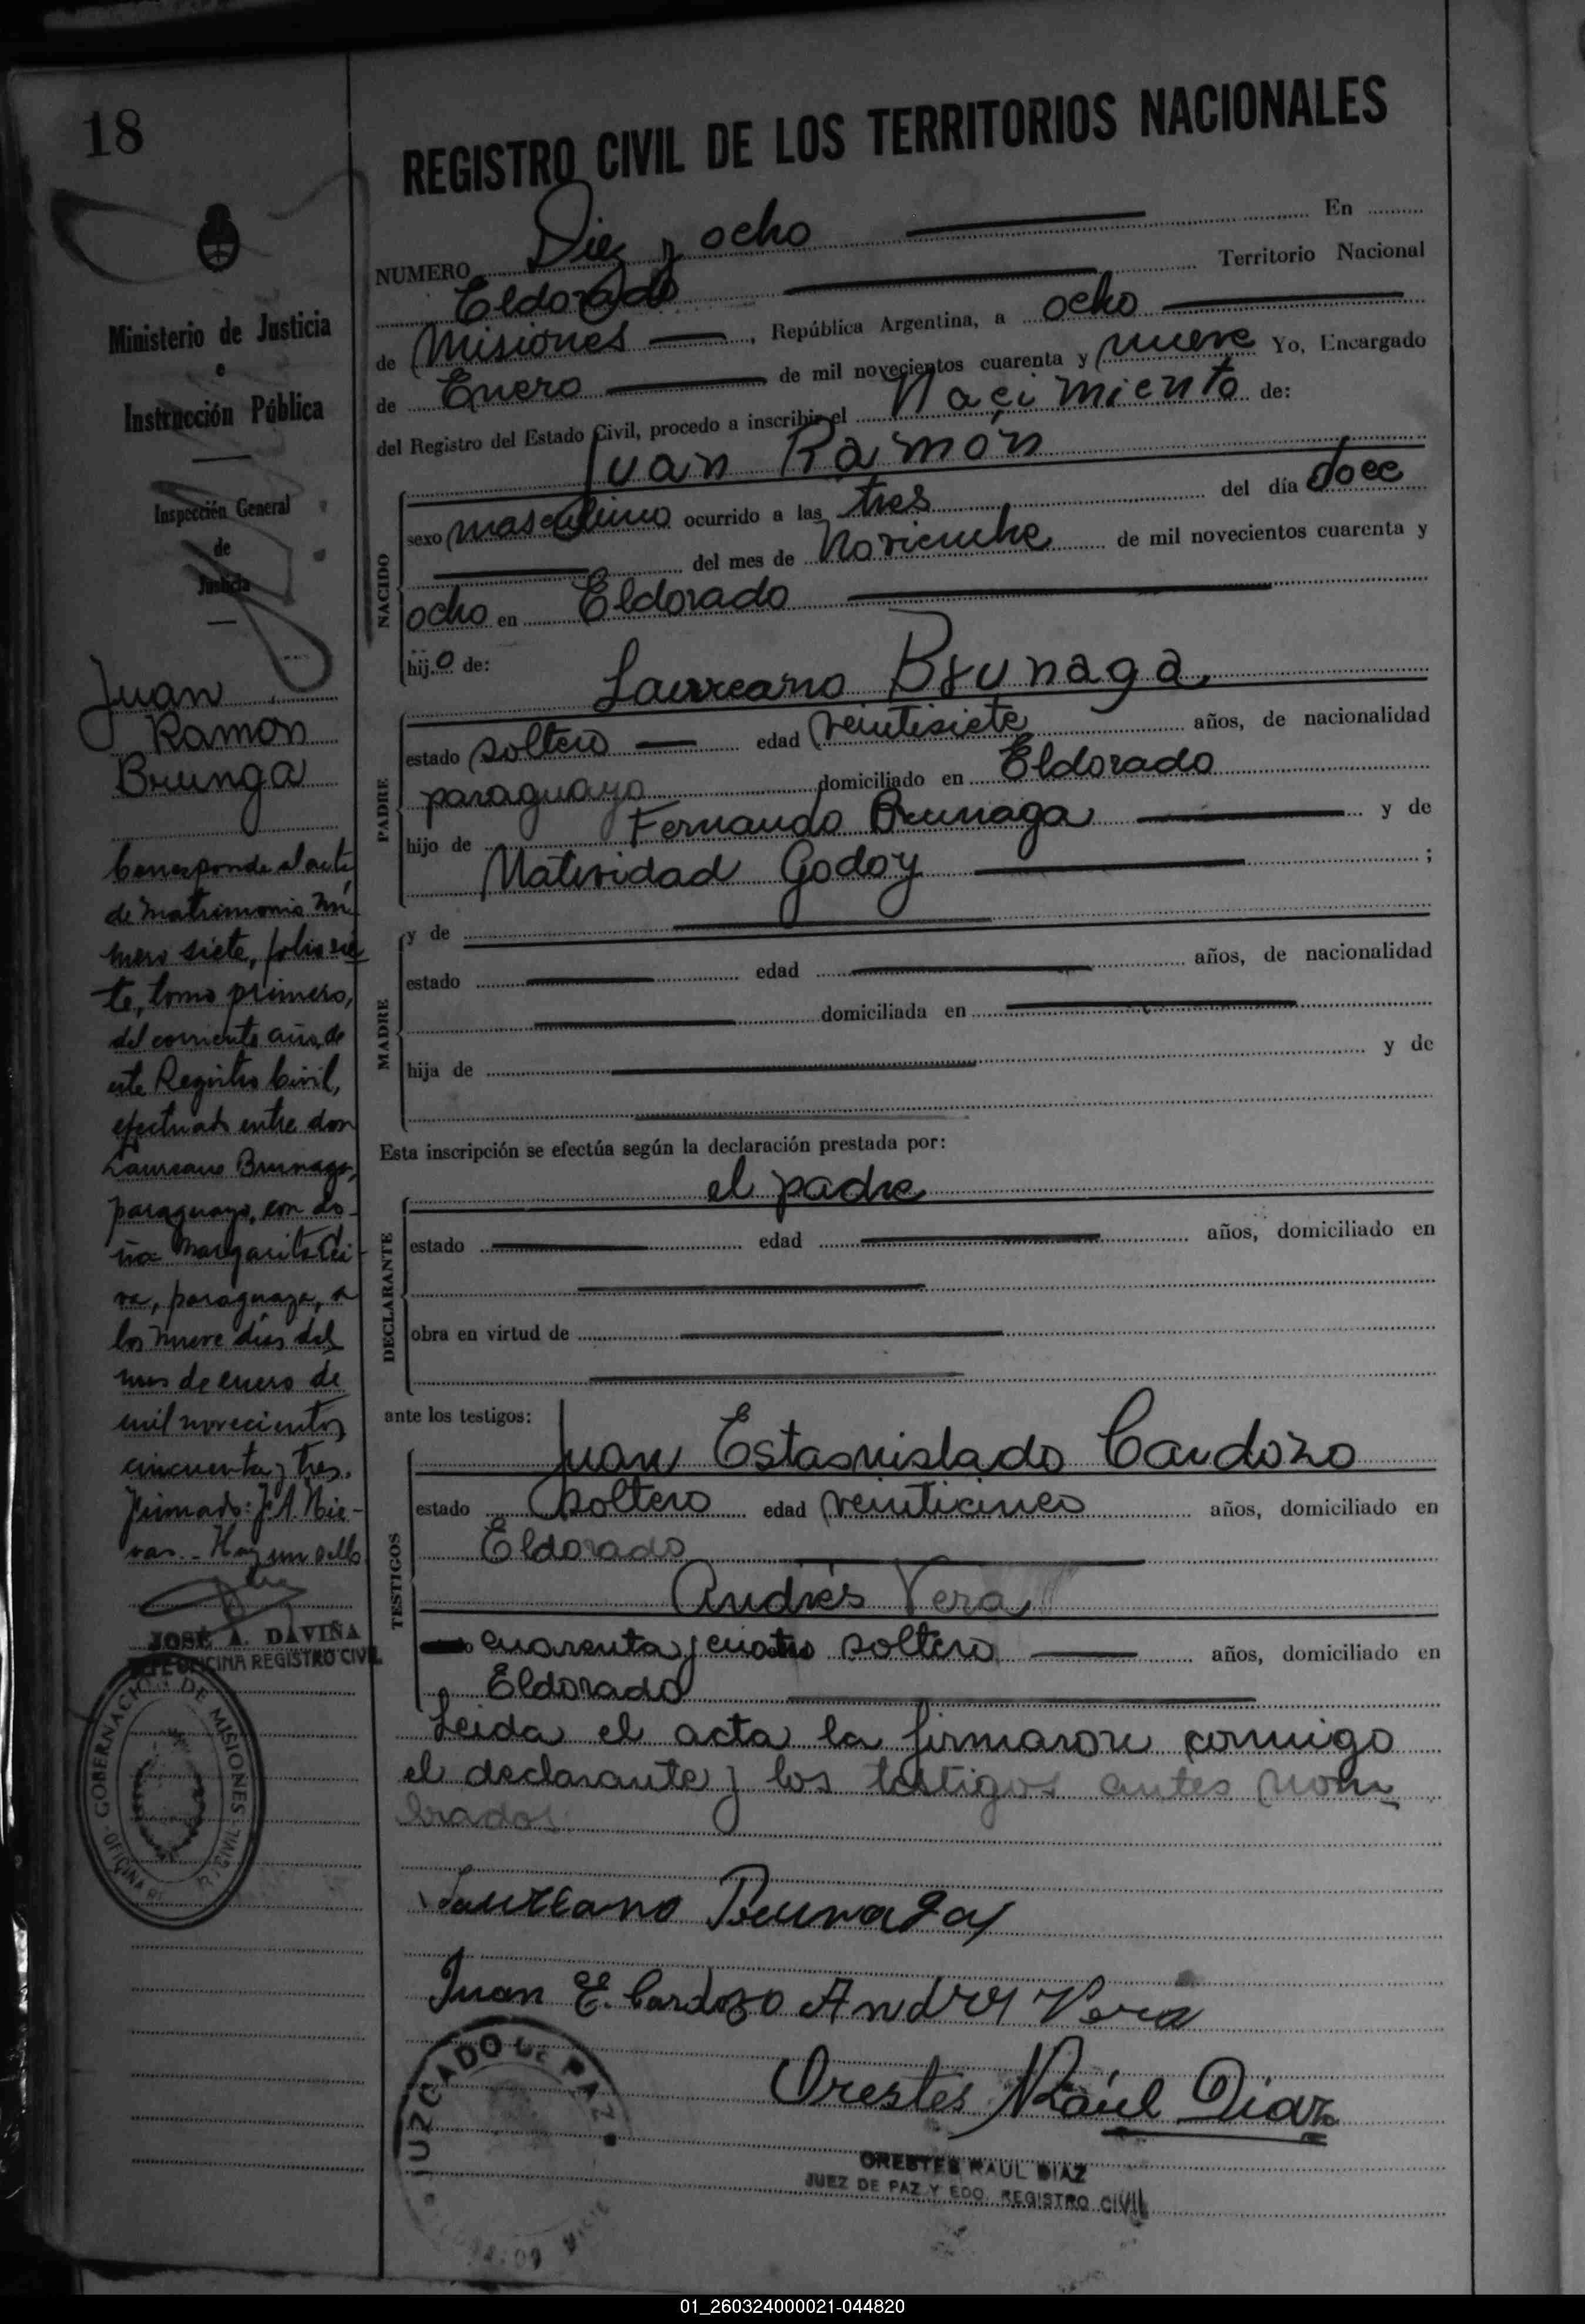 18
REGISTRO CIVIL DE LOS TERRITORIOS NACIONALES
NUMERO Diez y ocho En
Eldorado Territorio Nacional
de Misiones, República Argentina, a ocho
de Enero de mil novecientos cuarenta y nueve Yo, Encargado
del Registro del Estado Civil, procedo a inscribir el Nacimiento de:
Juan Ramón
NACIDO
sexo masculino ocurrido a las tres del día doce
del mes de Noviembre de mil novecientos cuarenta y
ocho en Eldorado
hijo de:
Laureano Brunaga
PADRE
estado soltero edad veintisiete años, de nacionalidad
paraguayo domiciliado en Eldorado
hijo de Fernando Brunaga y de
Natividad Godoy ;
MADRE
y de
estado edad años, de nacionalidad
domiciliada en
hija de y de
Esta inscripción se efectúa según la declaración prestada por:
el padre
DECLARANTE
estado edad años, domiciliado en
obra en virtud de
ante los testigos:
Juan Estasnislado Cardozo
TESTIGOS
estado soltero edad veinticinco años, domiciliado en
Eldorado
Andrés Vera
cuarenta y cuatro soltero años, domiciliado en
Eldorado
Leida el acta la firmaron conmigo
el declarante y los testigos antes nom-
brados.
Laureano Brunaga
Juan E. Cardozo Andres Vera
Orestes Raúl Díaz
ORESTES RAUL DIAZ
JUEZ DE PAZ Y EDO. REGISTRO CIVIL
JUZGADO DE PAZ
Ministerio de Justicia
e
Instrucción Pública
Inspección General
de
Justicia
Juan
Ramon
Brunga
Corresponde al acta
de matrimonio nú
mero siete, folio sie
te, tomo primero,
del corriente año, de
este Registro Civil,
efectuado entre don
Laureano Brunaga,
paraguayo, con do-
ña Margarita
paraguaya, a
los nueve días del
mes de enero de
mil novecientos
cincuenta y tres.
Firmado: J. A. Nie-
vas.- Hay un sello
JOSÉ A. DAVIÑA
OFICINA REGISTRO CIVIL
GOBERNACION DE MISIONES
OFICINA R. CIVIL
01_260324000021-044820